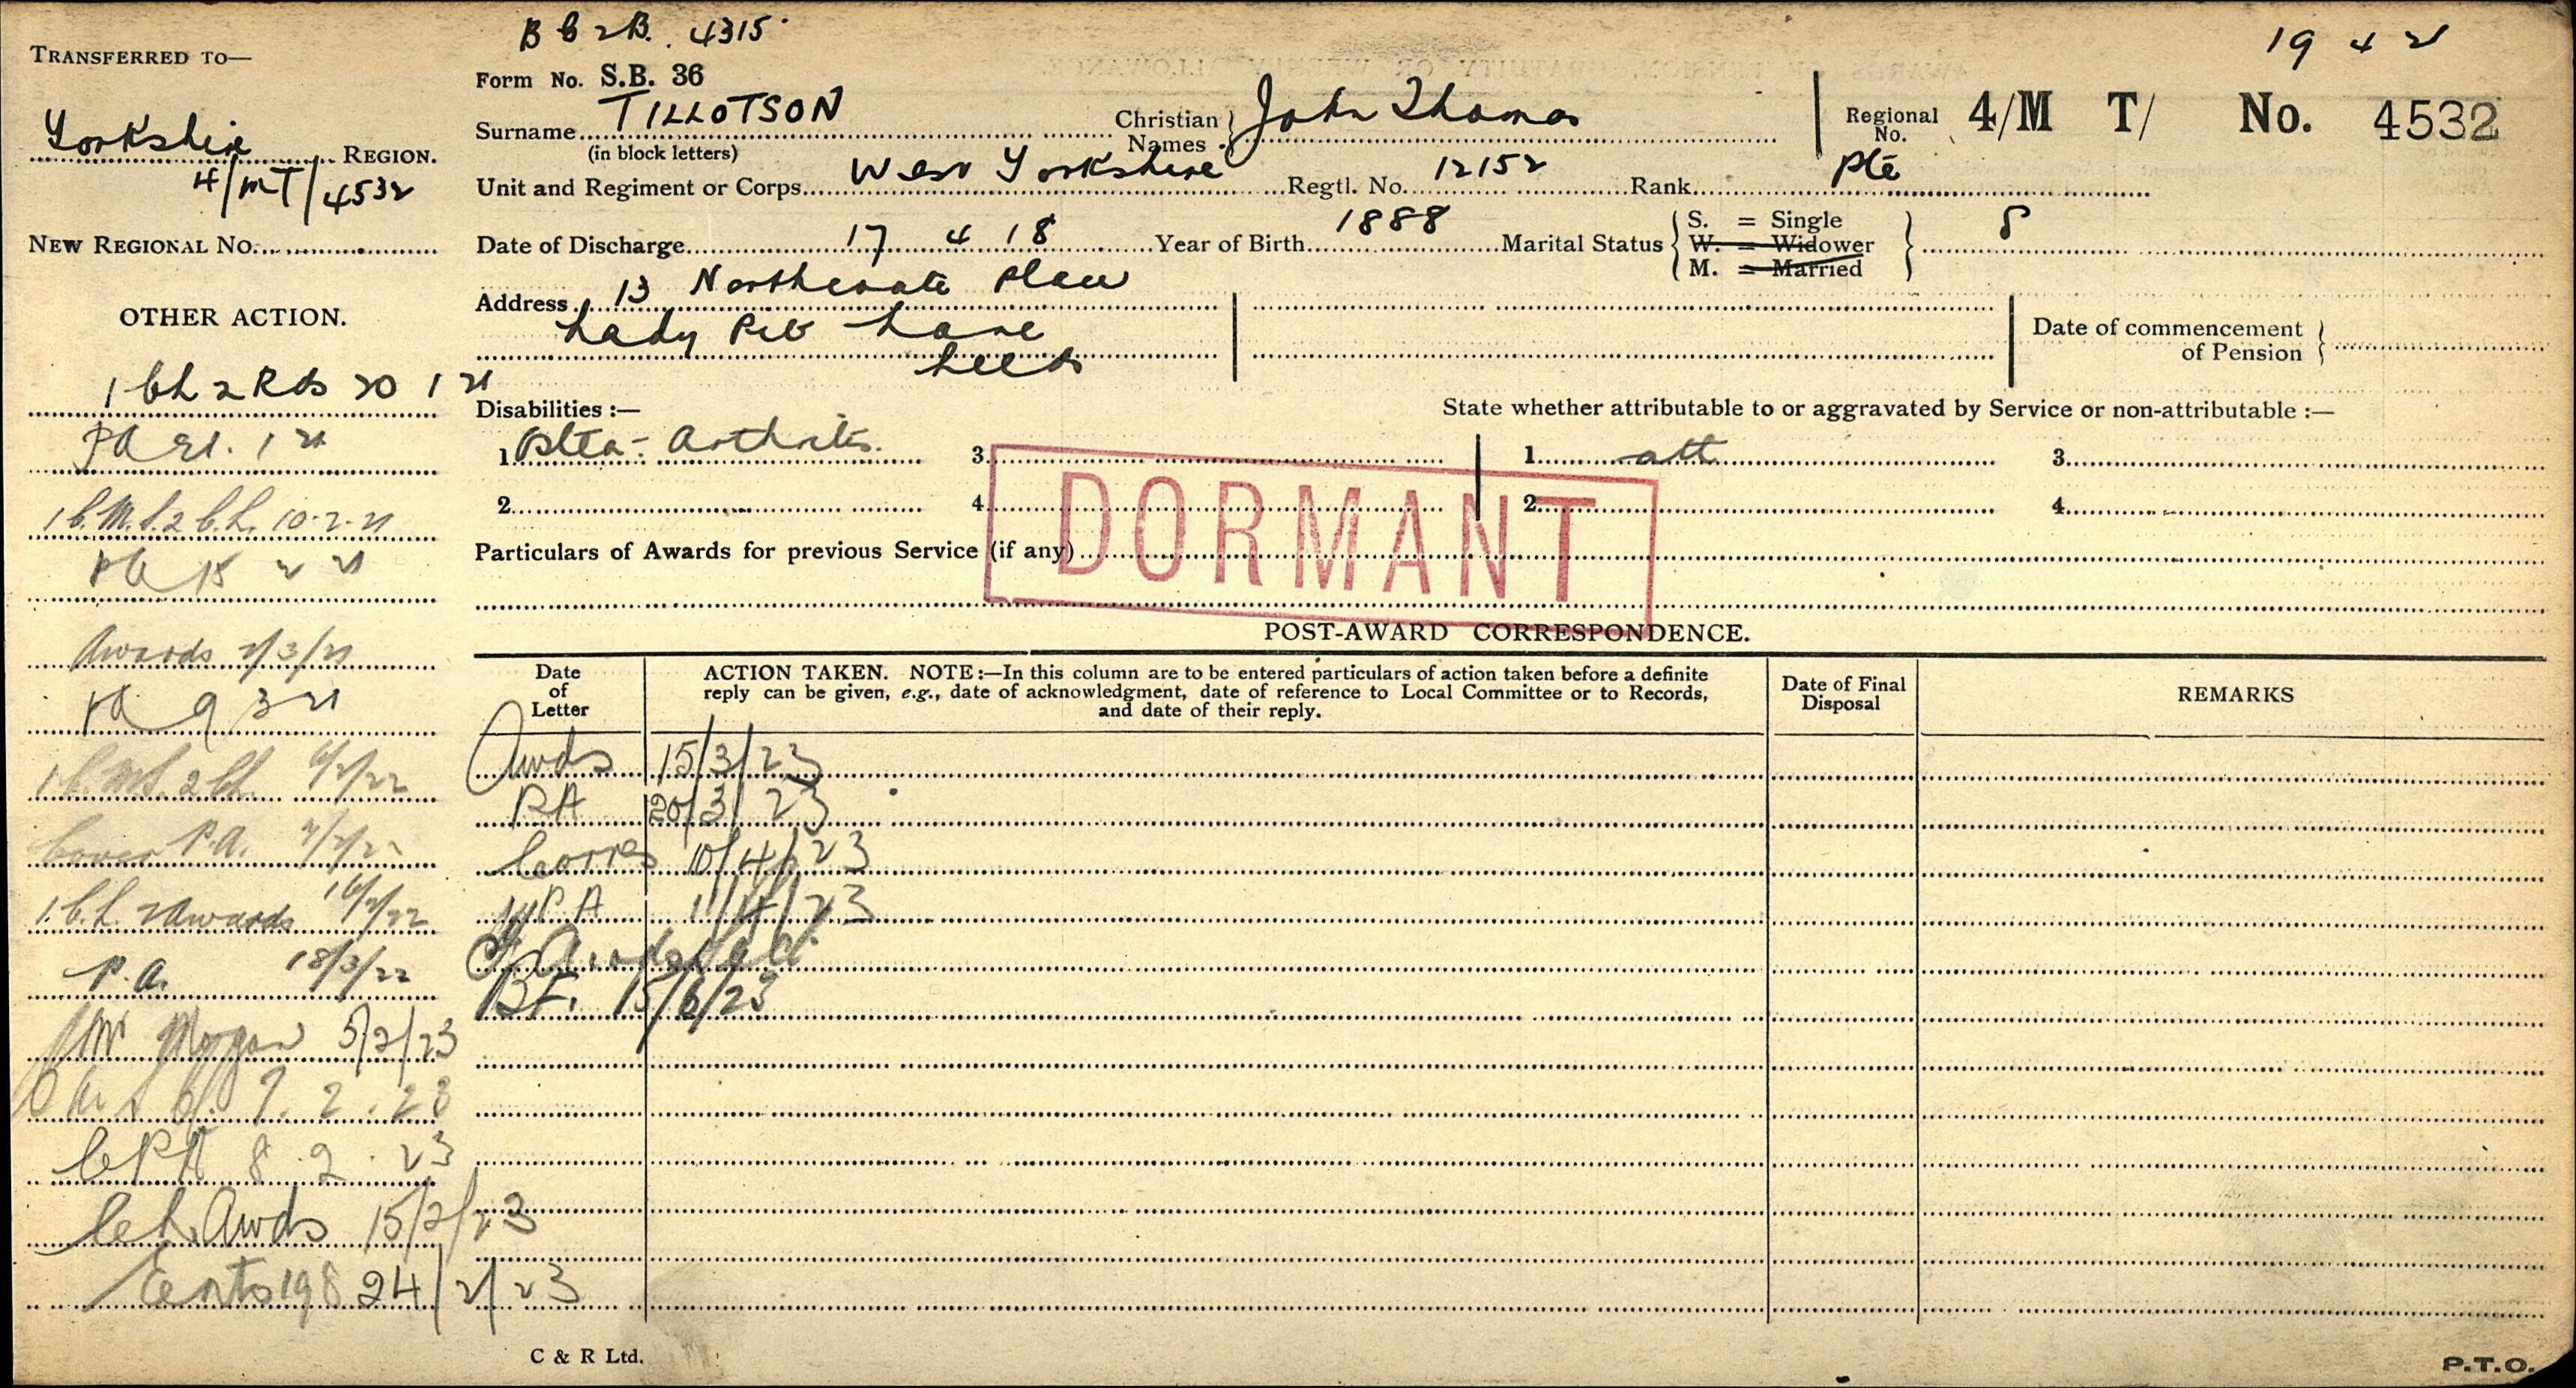 B 62B. 4315
19 4 21
TRANSFERRED TO—
Form No. S.B. 36
Yorkshire REGION.
4/MT/4532
NEW REGIONAL No.
Surname TILLOTSON
(in block letters)
Christian Names John Thomas
Regional No. 4/M T/ No. 4532
Unit and Regiment or Corps West Yorkshire Regtl. No. 12152 Rank Pte
Date of Discharge 17 4 18 Year of Birth 1888 Marital Status S. = Single W. = Widower M. = Married S
Address 13 Northcoate Place
Lady Pit Lane
Leeds
Date of commencement of Pension
OTHER ACTION.
20 1 21
PA 21. 1 21
10.2.21
PA 15 2 21
Awards 2/3/21
PA 9 3 21
P.A.
Awards
P.A. 18/3/22
Mr Morgan 5/2/23
7.2.23
8.2.23
Awds 15/2/23
24/2/23
Disabilities :—
State whether attributable to or aggravated by Service or non-attributable :—
1. Arthritis. 3. 1. att 3.
2. 4. 2. 4.
DORMANT
Particulars of Awards for previous Service (if any)
POST-AWARD CORRESPONDENCE.
Date of Letter
ACTION TAKEN. NOTE:—In this column are to be entered particulars of action taken before a definite
reply can be given, e.g., date of acknowledgment, date of reference to Local Committee or to Records,
and date of their reply.
Date of Final Disposal
REMARKS
Awds 15/3/23
PA 20/3/23
Corres 10/4/23
PA 11/4/23
BF. 15/6/23
C & R Ltd.
P.T.O.